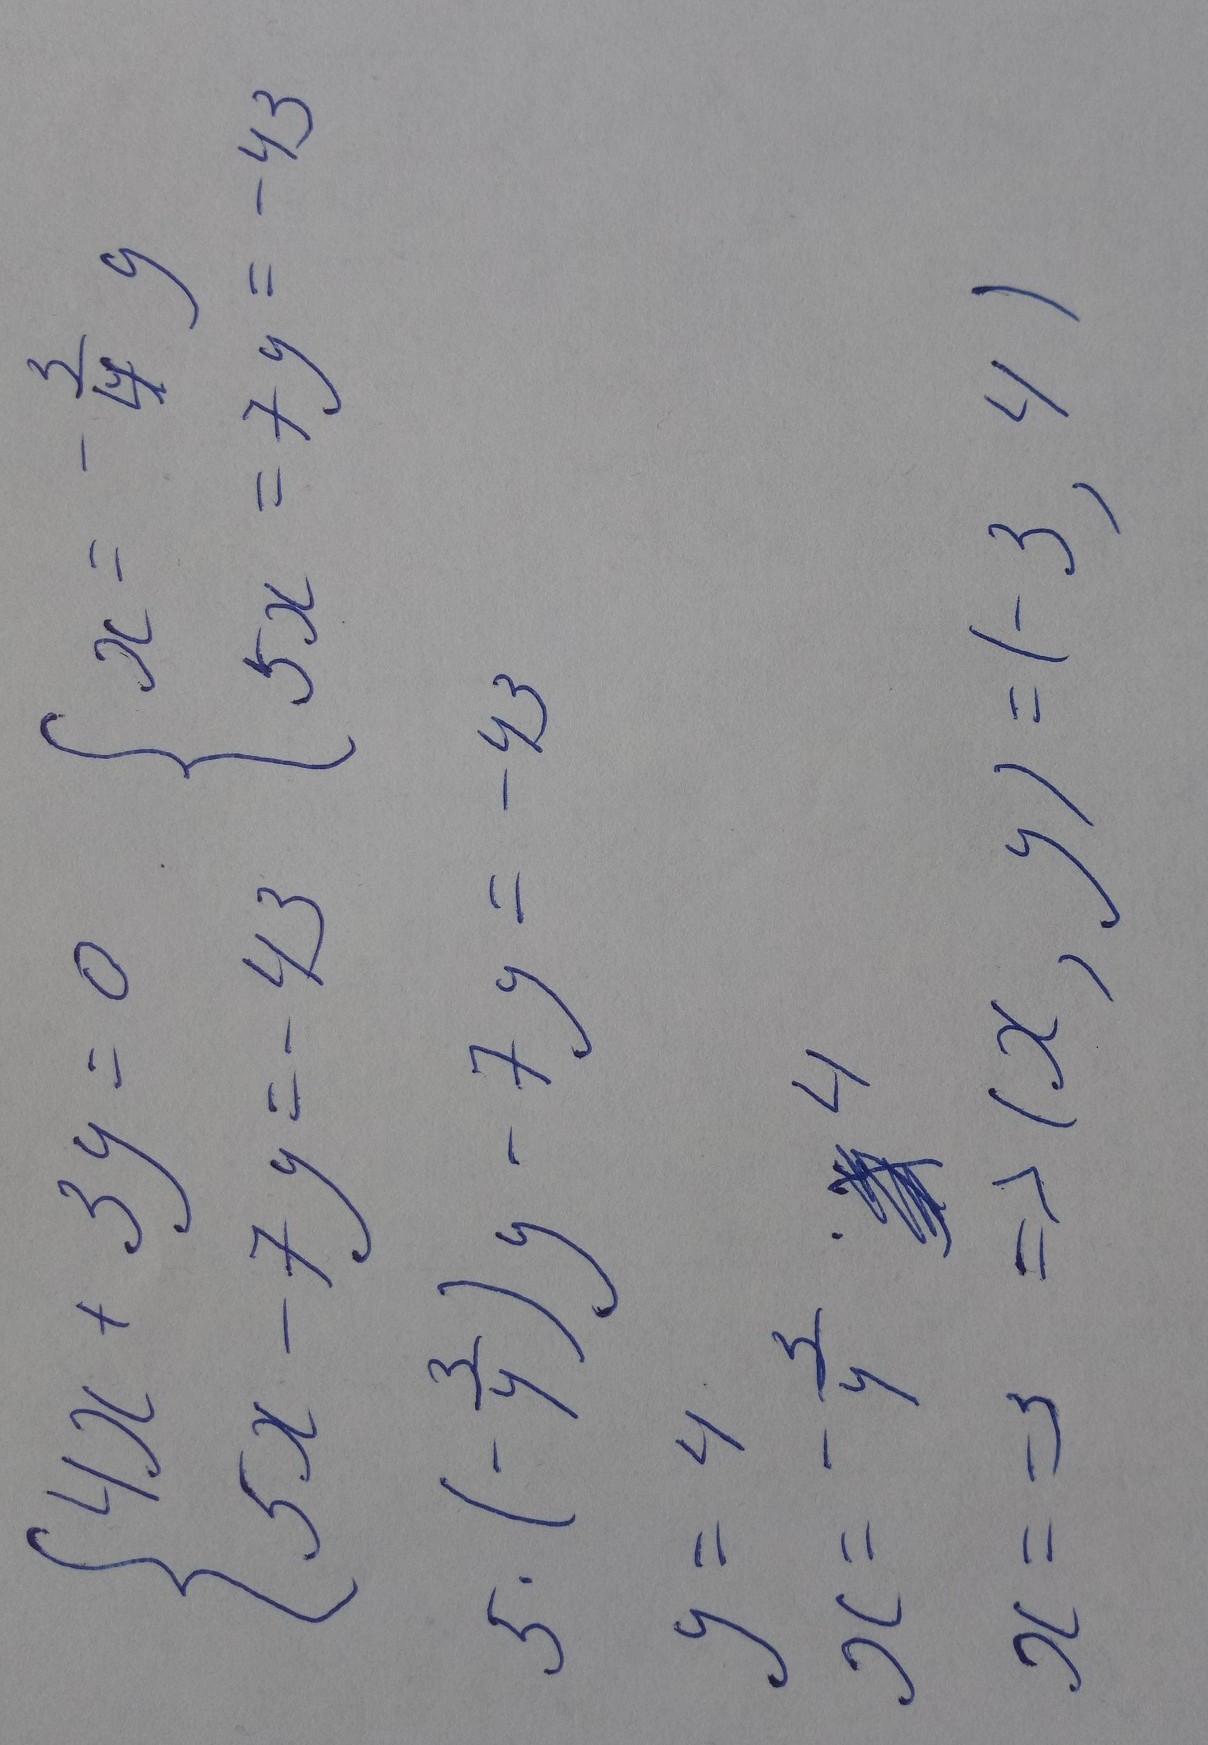 {4x + 3y = 0 {x = -3/4 y
{5x - 7y = -43 {5x = 7y = -43
5·(-3/4)y - 7y = -43
y = 4
x = -3/4 · 4
x = -3 => (x, y) = (-3, 4)